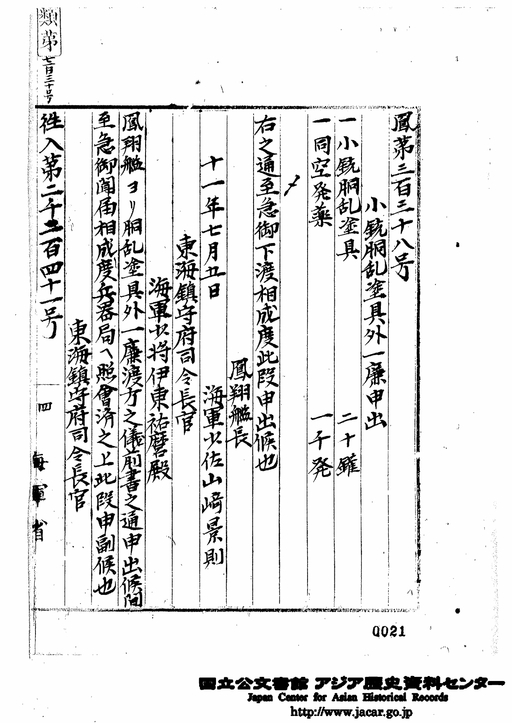 類第
七百三十号
鳳第三百三十八号
小銃胴乱塗具外一廉申出
一小銃胴乱塗具 二十鑵
一同空発薬 一千発
右之通至急御下渡相成度此段申出候也
鳳翔艦長
海軍少佐山﨑景則
十一年七月五日
東海鎮守府司令長官
海軍少将伊東祐麿殿
鳳翔艦ヨリ胴乱塗具外一廉渡方之儀前書之通申出候間
至急御聞届相成度兵器局ヘ照會済之上此段申副候也
東海鎮守府司令長官
往入第二千三百四十一号
四
海軍省
0021
国立公文書館 アジア歴史資料センター
Japan Center for Asian Historical Records
http://www.jacar.go.jp